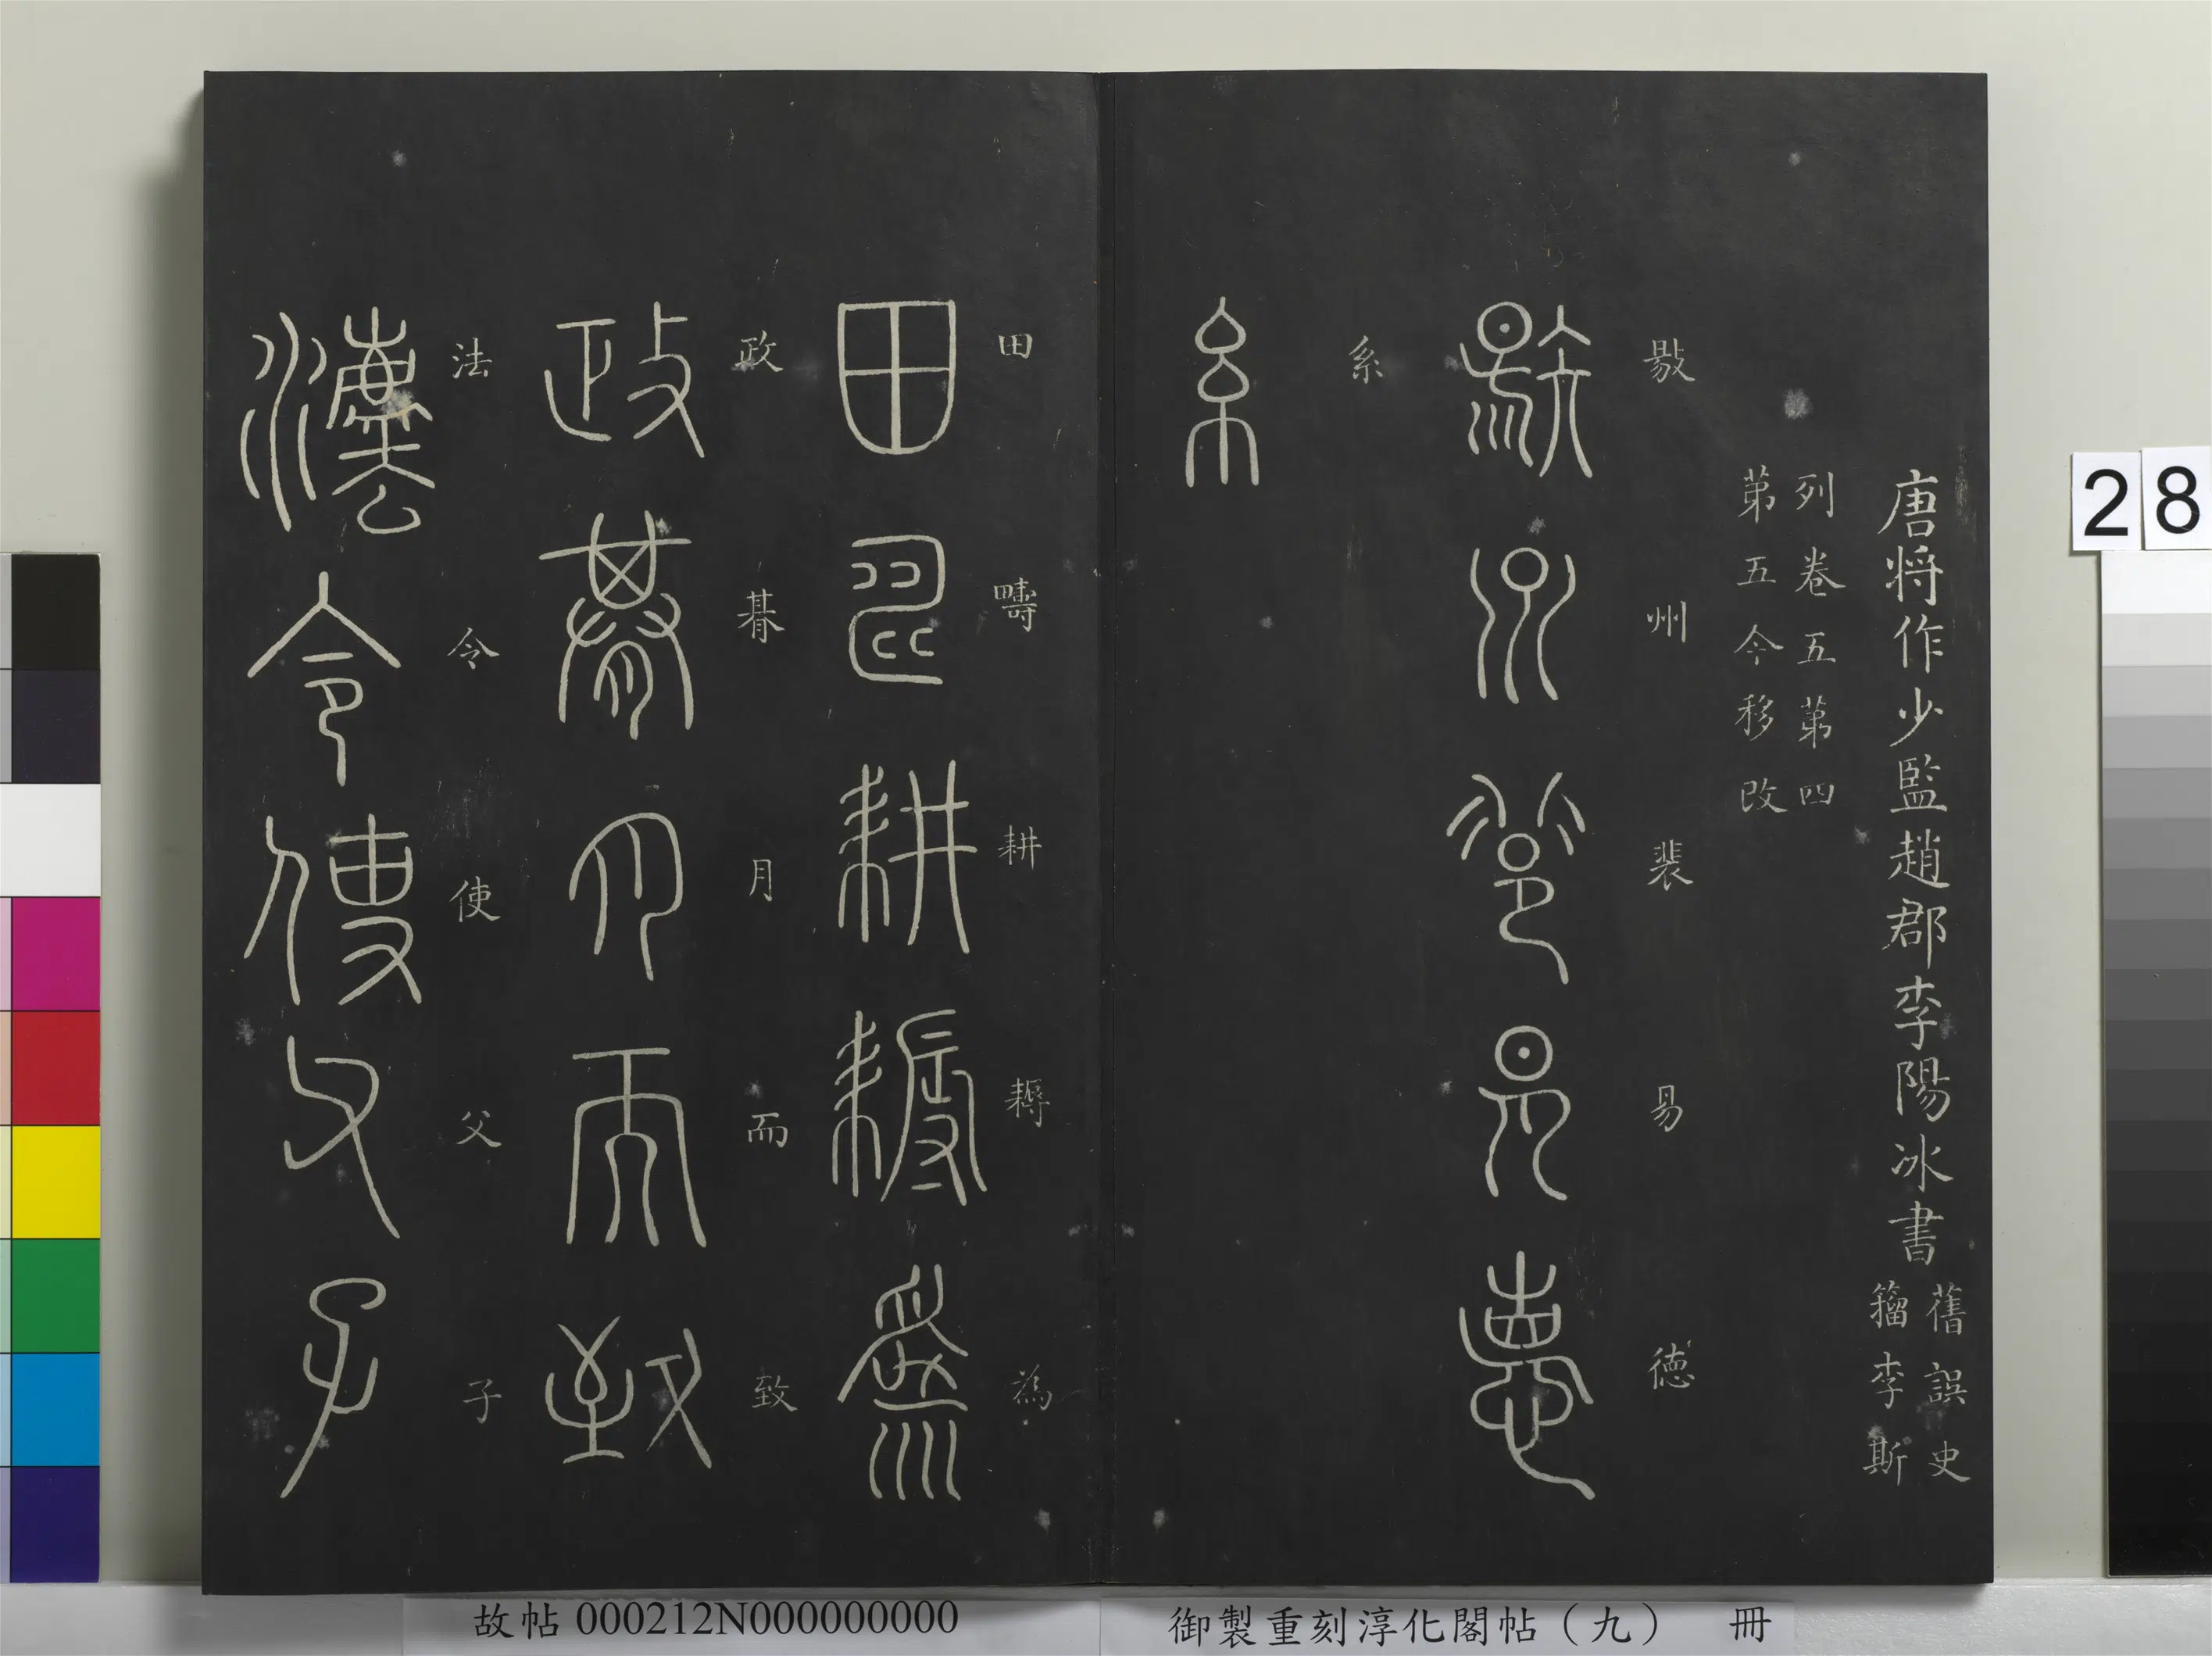 唐将作少監趙郡李陽冰書
舊誤史
籀李斯
列卷五第四
第五今移改
敡州裴易德
系
田疇耕耨為
政朞月而致
法令使父子
28
故帖 000212N000000000
御製重刻淳化閣帖（九） 冊